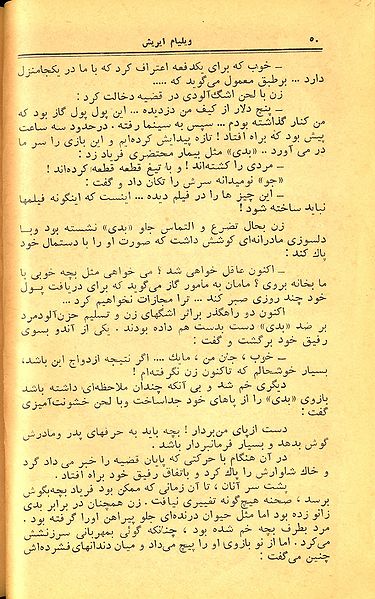 ۵۰ ویلیام ایریش
ــ خوب که برای یکدفعه اعتراف کرد که با ما در یکجا منزل
دارد ... برطبق معمول می‌گوید که .....
زن با لحن اشگ‌آلودی در قضیه دخالت کرد :
ــ پنج دلار از کیف من دزدیده ... این پول پول گاز بود که
من کنار گذاشته بودم ... سپس به سینما رفته . درحدود سه ساعت
پیش بود که براه افتاد ! تازه پیدایش کرده‌ایم و این بازی را سر ما
در می آورد .. «بدی» مثل بیمار محتضری فریاد زد :
ــ مردی را کشته‌اند ! و با تیغ قطعه قطعه کرده‌اند !
«جو» نومیدانه سرش را تکان داد و گفت :
ــ این چیز ها را در فیلم دیده ... اینست که اینگونه فیلمها
نباید ساخته شود !
زن بحال تضرع و التماس جلو «بدی» نشسته بود وبا
دلسوزی مادرانه‌ای کوشش داشت که صورت او را با دستمال خود
پاک کند :
ــ اکنون عاقل خواهی شد ؟ می خواهی مثل بچه خوبی با
ما بخانه بروی ؟ مامان به مامور گاز می‌گوید که برای دریافت پول
خود چند روزی صبر کند ... ترا مجازات نخواهیم کرد ...
اکنون دو راهگذر براثر اشگهای زن و تسلیم حزن‌آلودمرد
بر ضد «بدی» دست بدست هم داده بودند . یکی از آندو بسوی
رفیق خود برگشت و گفت :
ــ خوب ، جان من ، مایك .... اگر نتیجه ازدواج این باشد،
بسیار خوشحالم که تاکنون زن نگرفته‌ام !
دیگری خم شد و بی آنکه چندان ملاحظه‌ای داشته باشد
بازوی «بدی» را از پاهای خود جداساخت وبا لحن خشونت‌آمیزی
گفت :
دست ازپای من‌بردار ! بچه باید به حرفهای پدر ومادرش
گوش بدهد و بسیار فرمانبردار باشد .
در آن هنگام با حرکتی که پایان قضیه را خبر می داد گرد
و خاك شلوارش را پاك کرد و باتفاق رفیق خود براه افتاد .
پشت سر آنان ، تا آن زمانی که ممکن بود فریاد بچه‌بگوش
برسد ، صحنه هیچ‌گونه تغییری نیافت . زن همچنان در برابر بدی
زانو زده بود اما مثل حیوان درنده‌ای جلو پیراهن اورا گرفته بود .
مرد بطرف بچه خم شده بود ، چنانکه گوئی بمهربانی سرزنشش
می‌کرد . اما از نو بازوی او را پیچ می‌داد و میان دندانهای فشرده‌اش
چنین می‌گفت :